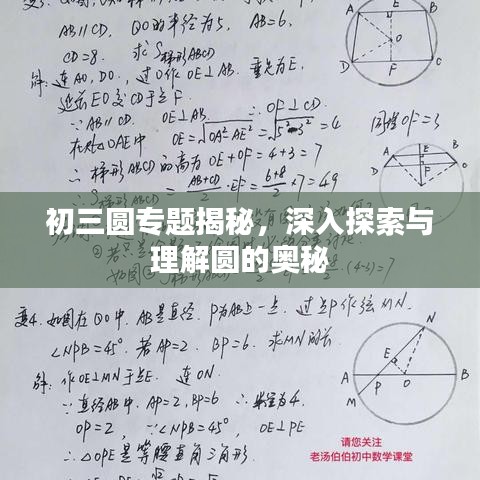 AB∥CD, ⊙O的半径为5, AB=6,
CD=8. 求S梯形ABCD
解: 连AO, DO, 过O作OE⊥AB. 垂足为E,
延长EO交CD于点F
∵AB∥CD OE⊥AB. ∴OF⊥CD.
在Rt△OAE中 OE=√OA²-AE²=√5²-3²=4 同理OF=3
∴梯形ABCD的高为OE+OF=4+3=7
∴S梯形ABCD=AB+CD/2·EF=6+8/2×7=49
A E B
O
D F C
初三圆专题揭秘，深入探索与
理解圆的奥秘
变4. 如图在⊙O中. AB是直径. P为AB上一点. 过点P作弦MN.
∠NPB=45°. 若AP=2. BP=6. 求MN的长.
解: 作OE⊥MN于点E. 连ON.
∵直径AB中. AP=2, BP=6 ∴半径为4.
OP=2, ∵∠NPB=45°, OE⊥PE
∴△OPE是等腰直角三角形.
N
E
A P O B
M
请您关注
老汤伯伯初中数学课堂